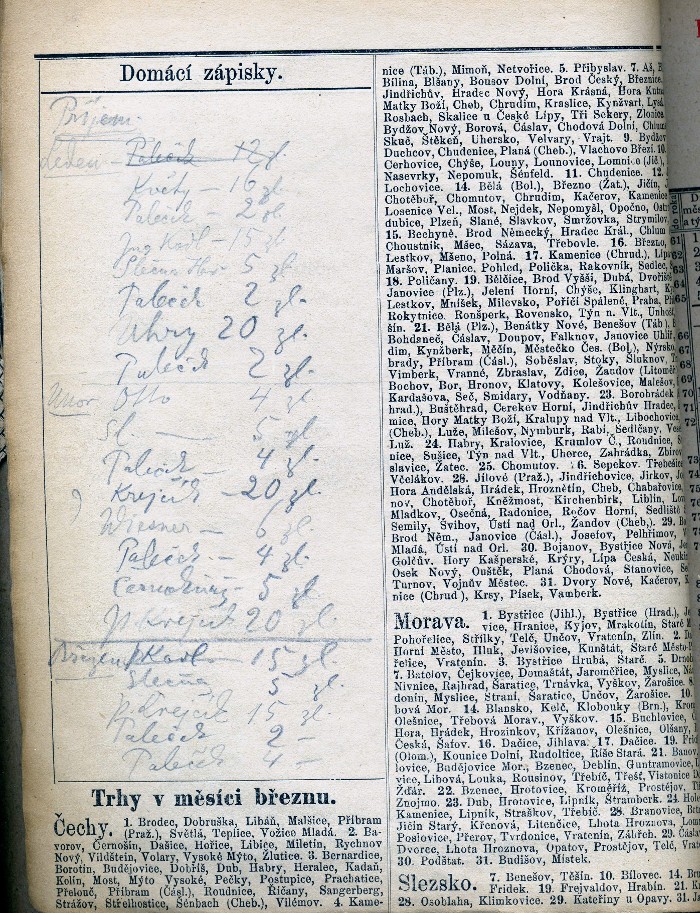 Domácí zápisky.
Příjem.
Leden - Paleček 12 zl.
Květy - 16 zl.
Paleček 2 zl.
Ing Kadl - 15 zl.
Slečna 5 zl.
Paleček 2 zl.
Uhry 20 zl.
Paleček 2 zl.
Únor Otto 4 zl.
Sl — 5 zl.
Paleček - 4 zl.
Krejčík - 20 zl.
Wiesner - 6 zl.
Paleček - 4 zl.
5 zl.
p. Krejčík 20 zl.
Březen p. Kadl - 15 zl.
Slečna 5 zl.
p. Krejčík 15 zl.
Paleček 2 -
Paleček 4 -
Trhy v měsíci březnu.
Čechy. 1. Brodec, Dobruška, Libáň, Malšice, Příbram
(Praž.), Světlá, Teplice, Vožice Mladá. 2. Ba-
vorov, Černošín, Dašice, Hořice, Libice, Miletín, Rychnov
Nový, Vildštein, Volary, Vysoké Mýto, Žlutice. 3. Bernardice,
Borotín, Budějovice, Dobříš, Dub, Habry, Heralec, Kadaň,
Kolín, Most, Mýto Vysoké, Pečky, Postupice, Prachatice,
Přelouč, Příbram (Čásl.), Roudnice, Říčany, Sangerberg,
Strážov, Střelhoštice, Šénbach (Cheb.), Vilémov. 4. Kame-
nice (Táb.), Mimoň, Netvořice. 5. Přibyslav. 7. Aš,
Bílina, Blšany, Bousov Dolní, Brod Český, Březnice
Jindřichův, Hradec Nový, Hora Krásná, Hora
Matky Boží, Cheb, Chrudim, Kraslice, Kynžvart,
Rosbach, Skalice u České Lípy, Tři Sekery, Zlonice
Bydžov Nový, Borová, Čáslav, Chodová Dolní,
Skuč, Štěkeň, Uhersko, Velvary, Vrajt. 9.
Duchcov, Chudenice, Planá (Cheb.), Vlachovo Březí. 10.
Cerhovice, Chýše, Louny, Lounovice, Lomnice (Jič.),
Nasevrky, Nepomuk, Šénfeld. 11. Chudenice. 12.
Lochovice. 14. Bělá (Bol.), Březno (Žat.), Jičín,
Chotěboř, Chomutov, Chrudim, Kačerov, Kamenice
Losenice Vel., Most, Nejdek, Nepomyšl, Opočno,
dubice, Plzeň, Slané, Slavkov, Smržovka, Strymilov,
15. Bechyně. Brod Německý, Hradec Král.,
Choustník, Mšec, Sázava, Třebovle. 16. Březno,
Lestkov, Mšeno, Polná. 17. Kamenice (Chrud.),
Maršov, Planice, Pohled, Polička, Rakovník, Sedlec,
18. Poličany. 19. Bělčice, Brod Vyšší, Dubá,
Janovice (Plz.), Jelení Horní, Chýše, Klinghart,
Lestkov, Mníšek, Milevsko, Poříčí Spálené, Praha,
Rokytnice, Ronšperk, Rovensko, Týn n. Vlt.,
šín. 21. Bělá (Plz.), Benátky Nové, Benešov (Táb.)
Bohdaneč, Čáslav, Doupov, Falknov, Janovice
dim, Kynžberk, Měčín, Městečko Čes. (Bol.), Nýrsko,
brady, Příbram (Čásl.), Soběslav, Stoky, Šluknov,
Vimberk, Vranné, Zbraslav, Zdice, Žandov
Bochov, Bor, Hronov, Klatovy, Kolešovice, Malešov,
Kardašova, Seč, Smidary, Vodňany. 23. Borohrádek
hrad.), Buštěhrad, Cerekev Horní, Jindřichův Hradec,
mice, Hory Matky Boží, Kralupy nad Vlt., Libochovice
(Cheb.), Luže, Milešov, Nymburk, Rabí, Sedlčany,
Luž. 24. Habry, Kralovice, Krumlov Č., Roudnice,
nice, Sušice, Týn nad Vlt., Uherce, Zahrádka,
slavice, Žatec. 25. Chomutov. 26. Sepekov.
Včelákov. 28. Jílové (Praž.), Jindřichovice, Jirkov,
Hora Andělská, Hrádek, Hroznětín, Cheb, Chabařovice,
nov, Chotěboř, Kněžmost, Kirchenbirk, Liblín,
Mladkov, Osečná, Radonice, Ročov Horní, Sedliště
Semily, Švihov, Ústí nad Orl., Žandov (Cheb.). 29.
Brod Něm., Janovice (Čásl.), Josefov, Pelhřimov,
Mladá, Ústí nad Orl. 30. Bojanov, Bystřice Nová,
Golčův, Hory Kašperské, Krýry, Lípa Česká,
Osek Nový, Ouštěk, Planá Chodová, Stanovice,
Turnov, Vojnův Městec. 31. Dvory Nové, Kačerov,
nice (Chrud.), Krsy, Písek, Vamberk.
Morava. 1. Bystřice (Jihl.), Bystřice (Hrad.),
vice, Hranice, Kyjov, Mrakotín, Staré
Pohořelice, Střílky, Telč, Unčov, Vratenín, Zlín. 2.
Horní Město, Hluk, Jevišovice, Kunštát, Staré Město
řelice, Vratenín. 3. Bystřice Hrubá, Starč. 5.
7. Batelov, Čejkovice, Domaštát, Jaroměřice, Myslice,
Nivnice, Rajhrad, Šaratice, Trnávka, Vyškov, Žarošice.
donín, Myslice, Straní, Šaratice, Unčov, Žarošice. 10.
bová Mor. 14. Blansko, Kelč, Klobouky (Brn.),
Olešnice, Třebová Morav., Vyškov. 15. Buchlovice,
Hora, Hrádek, Hrozinkov, Křižanov, Olešnice, Olšany,
Česká, Šafov. 16. Dačice, Jihlava. 17. Dačice. 19.
(Olom.), Kounice Dolní, Rudoltice, Říše Stará. 21.
lovice, Budějovice Mor., Bzenec, Deblín, Guntramovice,
vice, Libová, Louka, Rousinov, Třebíč, Třešť, Vistonice
Žďár. 22. Bzenec, Hrotovice, Kroměříž, Prostějov,
Znojmo. 23. Dub, Hrotovice, Lipník, Štramberk. 24.
Kamenice, Lipník, Straškov, Třebíč. 28. Branovice,
Jičín Starý, Křenová, Litenčice, Lhota Hroznova,
Poslovice, Přerov, Tvrdonice, Vratenín, Zábřeh. 29.
Dvorce, Lhota Hroznova, Opatov, Prostějov, Telč,
30. Podštat. 31. Budišov, Místek.
Slezsko. 7. Benešov, Těšín. 10. Bílovec. 14.
Frídek. 19. Frejvaldov, Hrabín. 21.
28. Osoblaha, Klimkovice. 29. Kateřiny u Opavy. 31.